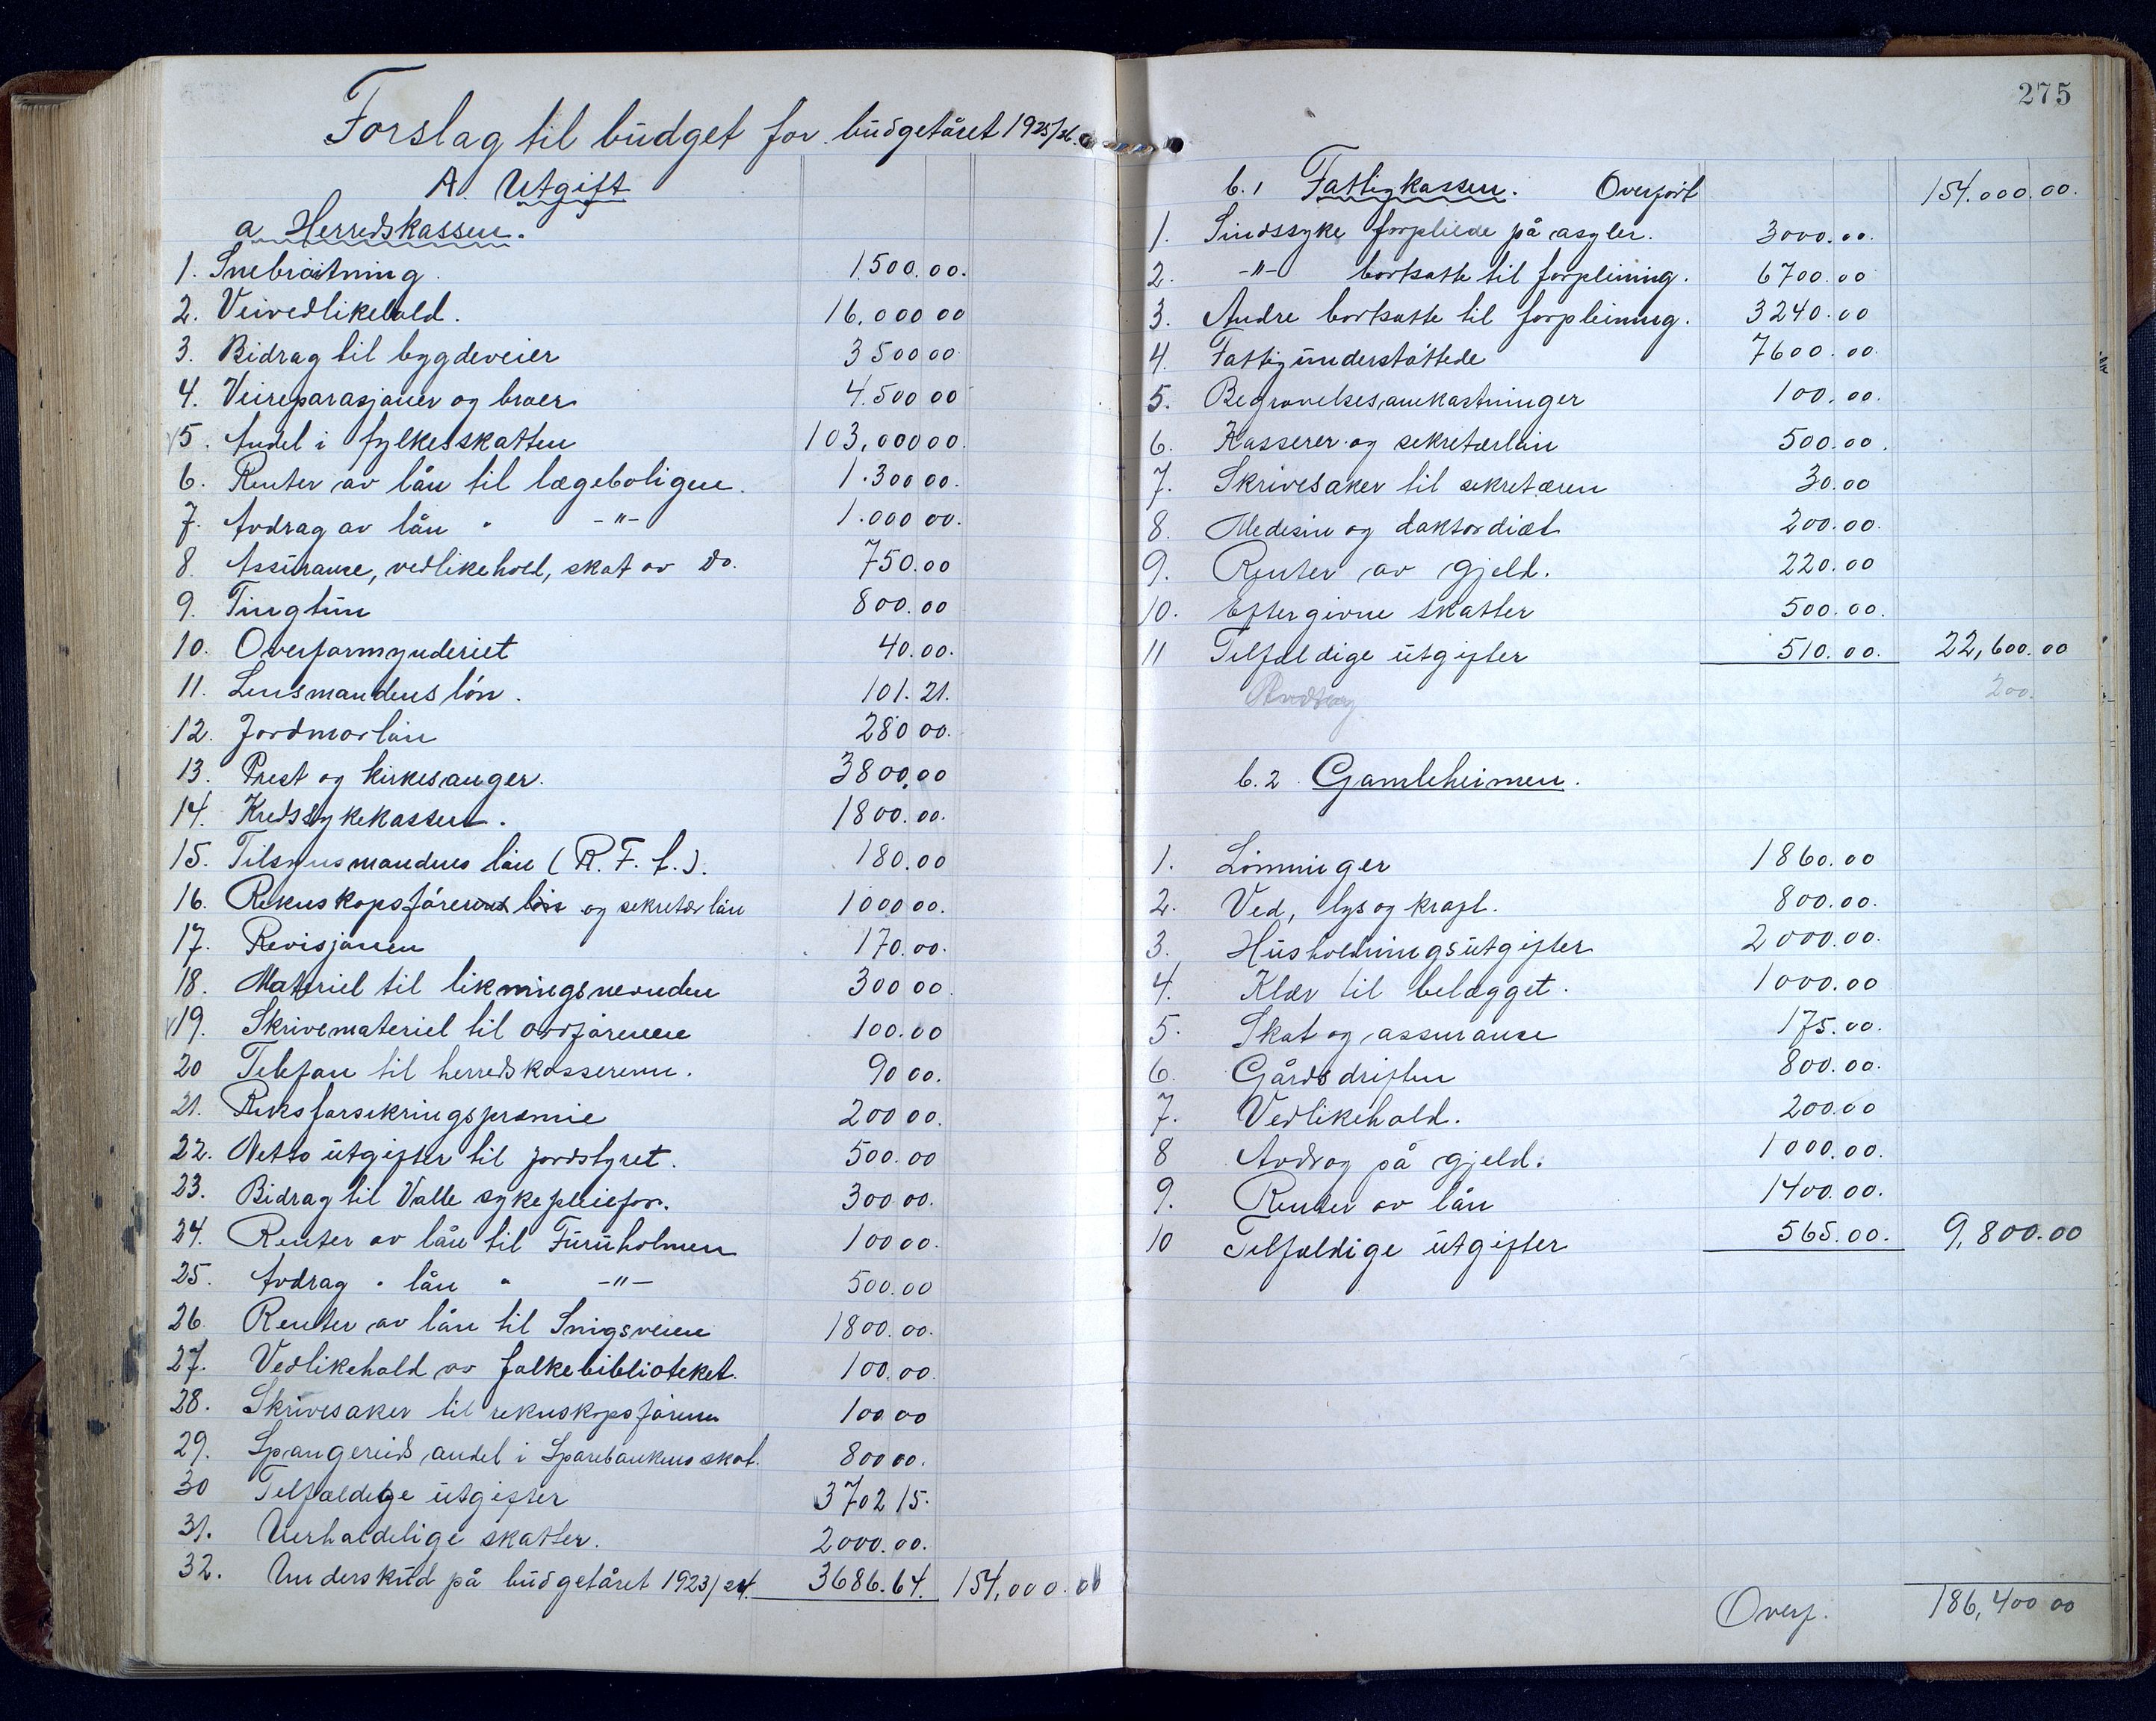 Forslag til budget for budgetåret 1925/26.
A. Utgift
a. Herredskassen.
1. Snebröitning 1.500.00.
2. Veivedlikehold. 16.000 00
3. Bidrag til bygdeveier 3 500 00
4. Veireparasjoner og broer 4.500 00
5. Andel i fylkesskatten 103,000 00.
6. Renter av lån til lægeboligen. 1.300 00.
7. Avdrag av lån " -"- 1.000 00.
8. Assurance, vedlikehold, skat av do. 750.00
9. Tingtun 800.00
10. Overformynderiet 40.00.
11. Lensmandens lön. 101.21.
12. Jordmorlön 280 00.
13. Prest og kirkesanger. 3800.00
14. Kredssykekassen. 1800.00.
15. Tilsynsmandens lön (R. F. f.). 180.00
16. Rekneskapsförerens lön og sekretær lön 1000 00.
17. Revisjonen 170.00.
18. Materiel til likningsnevnden 300 00.
19. Skrivemateriel til ordföreren 100.00
20 Telefon til herredskassereren. 90 00.
21. Riksforsikringspræmie 200 00.
22. Netto utgifter til jordstyret. 500.00
23. Bidrag til Valle sykepleiefor. 300 00.
24. Renter av lån til Furuholmen 100 00.
25. Avdrag " lån " -"- 500.00
26. Renter av lån til Snigsveien 1800.00.
27. Vedlikehold av folkebiblioteket. 100.00
28. Skrivesaker til rekneskapsföreren 100 00
29. Spangereids andel i Sparebankens skat. 800 00.
30 Tilfældige utgifter 3702 15.
31. Uerholdelige skatter. 2000.00.
32. Underskud på budgetåret 1923/24. 3686.64. 154,000.00
275
b.1 Fattigkassen. Overfört 154.000.00.
1. Sindssyke forpleiede på asyler. 3000.00.
2. -"- bortsatte til forpleining. 6700.00
3. Andre bortsatte til forpleining. 3240.00
4. Fattigunderstöttede 7600.00.
5. Begravelsesomkostninger 100.00.
6. Kasserer og sekretærlön 500.00.
7. Skrivesaker til sekretæren 30.00
8. Medesin og doktordiæt 200.00.
9. Renter av gjeld. 220.00
10. Eftergivne skatter 500.00.
11 Tilfældige utgifter 510.00. 22,600.00
Avdrag 200.
b.2 Gamleheimen.
1. Lönninger 1860.00
2. Ved, lys og kraft. 800.00.
3. Husholdningsutgifter 2000.00.
4. Klær til belægget. 1000.00
5. Skat og assurance 175.00.
6. Gårdsdriften 800.00.
7. Vedlikehold. 200.00
8 Avdrag på gjeld. 1000.00.
9. Renter av lån 1400.00.
10 Tilfældige utgifter 565.00. 9,800.00
Overf. 186,400 00